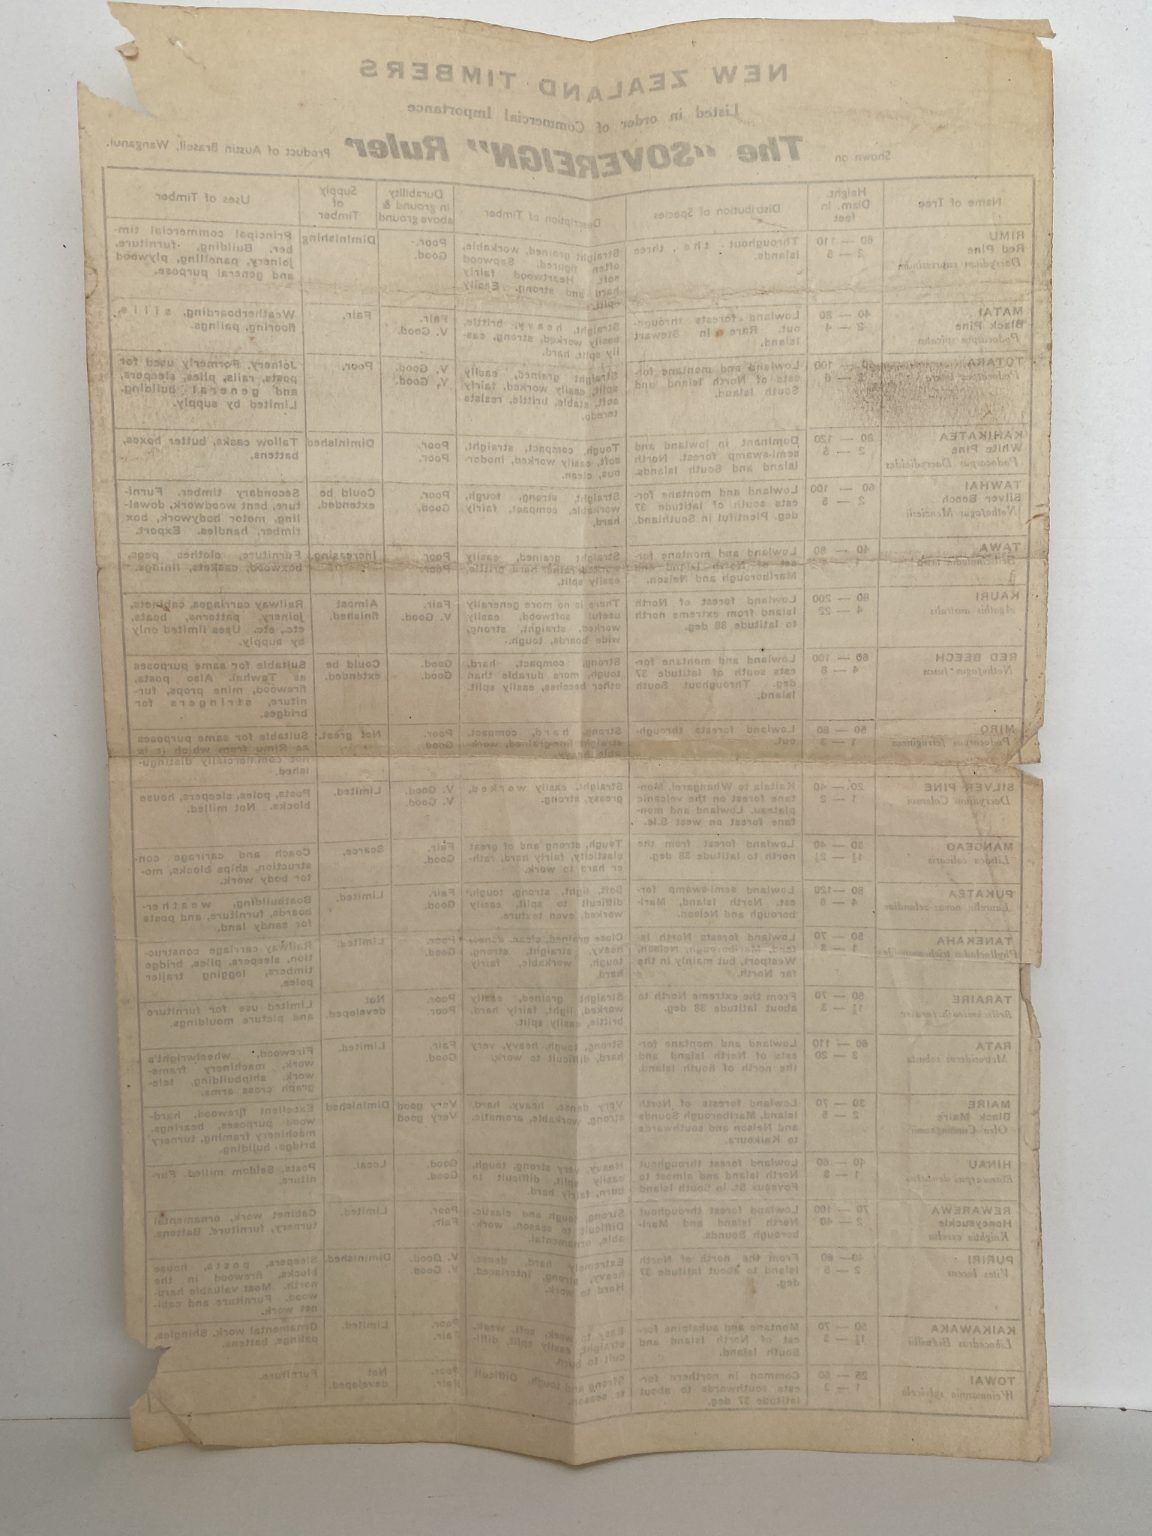 NEW ZEALAND TIMBERS
Listed in order of Commercial Importance
Shown on The "SOVEREIGN" Ruler Product of Austin Brasell, Wanganui.
Name of Tree
Height, Diam. in feet
Distribution of Species
Description of Timber
Durability in ground & above ground
Supply of Timber
Uses of Timber
RIMU
Red Pine
60 — 110
2 — 5
Throughout the three
Islands.
Straight grained, workable,
often figured. Sapwood
soft. Heartwood fairly
hard and strong. Easily
split.
Poor.
Good.
Diminishing
Principal commercial tim-
ber. Building, furniture,
joinery, panelling, plywood
and general purpose.
MATAI
Black Pine
40 — 80
2 — 4
Lowland forests through-
out. Rare in Stewart
Island.
Straight, heavy, brittle,
easily worked, strong, eas-
ily split, hard.
Fair.
V. Good.
Fair.
Weatherboarding, sills,
flooring, palings.
TOTARA
Lowland and montane for-
ests of North Island and
South Island.
Straight grained, easily
split, easily worked, fairly
soft, stable, brittle, resists
teredo.
V. Good.
V. Good.
Poor.
Joinery. Formerly used for
posts, rails, piles, sleepers,
and general building.
Limited by supply.
KAHIKATEA
White Pine
80 — 120
2 — 5
Dominant in lowland and
semi-swamp forest. North
Island and South Islands.
Tough, compact, straight,
soft, easily worked, inodor-
ous, clean.
Poor.
Poor.
Diminished
Tallow casks, butter boxes,
battens.
TAWHAI
Silver Beech
60 — 100
2 — 5
Lowland and montane for-
ests south of latitude 37
deg. Plentiful in Southland.
Straight, strong, tough,
workable, compact, fairly
hard.
Poor.
Good.
Could be
extended.
Secondary timber. Furni-
ture, bent woodwork, dowel-
ling, motor bodywork, box
timber, handles. Export.
TAWA
40 — 80
Lowland and montane for-
est of North Island and
Marlborough and Nelson.
Straight grained, easily
easily split.
Poor
Poor.
Increasing.
Furniture, clothes pegs,
boxwood, caskets, linings.
KAURI
80 — 200
4 — 22
Lowland forest of North
Island from extreme north
to latitude 38 deg.
There is no more generally
useful softwood, easily
worked, straight, strong,
wide boards, tough.
Fair.
V. Good.
Almost
finished.
Railway carriages, cabinets,
joinery, patterns, boats,
etc., etc. Uses limited only
by supply.
RED BEECH
60 — 100
4 — 8
Lowland and montane for-
ests south of latitude 37
deg. Throughout South
Island.
Strong, compact, hard,
tough, more durable than
other beeches, easily split.
Good.
Good.
Could be
extended.
Suitable for same purposes
as Tawhai. Also posts,
firewood, mine props, fur-
niture, stringers for
bridges.
MIRO
50 — 80
1 — 3
Lowland forests through-
out.
Strong, hard, compact,
straight fine grained, work-
Poor.
Good
Not great.
Suitable for same purposes
as Rimu from which it is
not commercially distingui-
shed.
SILVER PINE
20 — 40
1 — 2
Kaitaia to Whangarei. Mon-
tane forest on the volcanic
plateau. Lowland and mon-
tane forest on west S.Is.
Straight, easily worked,
greasy, strong.
V. Good.
V. Good.
Limited.
Posts, poles, sleepers, house
blocks. Not milled.
MANGEAO
30 — 40
Lowland forest from the
north to latitude 38 deg.
Tough, strong and of great
elasticity, fairly hard, rath-
er hard to work.
Fair.
Good.
Scarce.
Coach and carriage con-
struction, ships blocks, mo-
tor body work.
PUKATEA
80 — 120
4 — 6
Lowland semi-swamp for-
est. North Island, Marl-
borough and Nelson.
Soft, light, strong, tough,
difficult to split, easily
worked, even texture.
Fair.
Good.
Limited.
Boatbuilding, weather-
boards, furniture, and posts
for sandy land.
TANEKAHA
50 — 70
1 — 3
Lowland forests North Is-
land, Marlborough, Nelson,
Westport, but mainly in the
far North.
Close grained, clean, dense,
heavy, straight, strong,
tough, workable, fairly
hard.
Poor.
Good.
Limited.
Railway carriage construc-
tion, sleepers, piles, bridge
timbers, logging trailer
poles.
TARAIRE
60 — 70
From the extreme North to
about latitude 38 deg.
Straight grained, easily
worked, light, fairly hard,
brittle, easily split.
Poor.
Poor.
Not
developed.
Limited use for furniture
and picture mouldings.
RATA
60 — 110
3 — 20
Lowland and montane for-
ests of North Island and
the north of South Island.
Strong, tough, heavy, very
hard, difficult to work.
Fair.
Good.
Limited.
Firewood, wheelwright's
work, machinery frame-
work, shipbuilding, tele-
graph cross arms.
MAIRE
Black Maire
30 — 70
2 — 5
Lowland forests of North
Island, Marlborough Sounds
and Nelson and southwards
to Kaikoura.
Very dense, heavy, hard,
strong, workable, aromatic.
Very good
Very good
Diminished
Excellent firewood, hard-
wood purposes, bearings,
machinery framing, turnery
bridge building.
HINAU
40 — 60
1 — 3
Lowland forest throughout
North Island and almost to
Foveaux St. in South Island
Heavy, very strong, tough,
easily split, difficult to
burn, fairly hard.
Good.
Good.
Local.
Posts. Seldom milled. Fur-
niture.
REWAREWA
Honeysuckle
Knightia excelsa
70 — 100
2 — 40
Lowland forest throughout
North Island and Marl-
borough Sounds.
Strong, tough and elastic.
Difficult to season, work-
able, ornamental.
Poor.
Fair.
Limited.
Cabinet work, ornamental
turnery, furniture. Battens.
PURIRI
Vitex lucens
40 — 60
2 — 5
From the north of North
Island to about latitude 37
deg.
Extremely hard, dense,
heavy, strong, interlaced.
Hard to work.
V. Good.
V. Good
Diminished.
Sleepers, posts, house
blocks, firewood in the
north. Most valuable hard-
wood. Furniture and cabi-
net work.
KAIKAWAKA
Libocedrus Bidwillii
50 — 70
Montane and subalpine for-
est of North Island and
South Island.
Easy to work, soft, weak,
straight, easily split, diffi-
cult to burn.
Poor.
Fair.
Limited.
Ornamental work. Shingles,
palings, battens.
TOWAI
25 — 60
1 — 3
Common in northern for-
ests southwards to about
latitude 37 deg.
Strong and tough. Difficult
to season.
Poor.
Fair.
Not
developed.
Furniture.